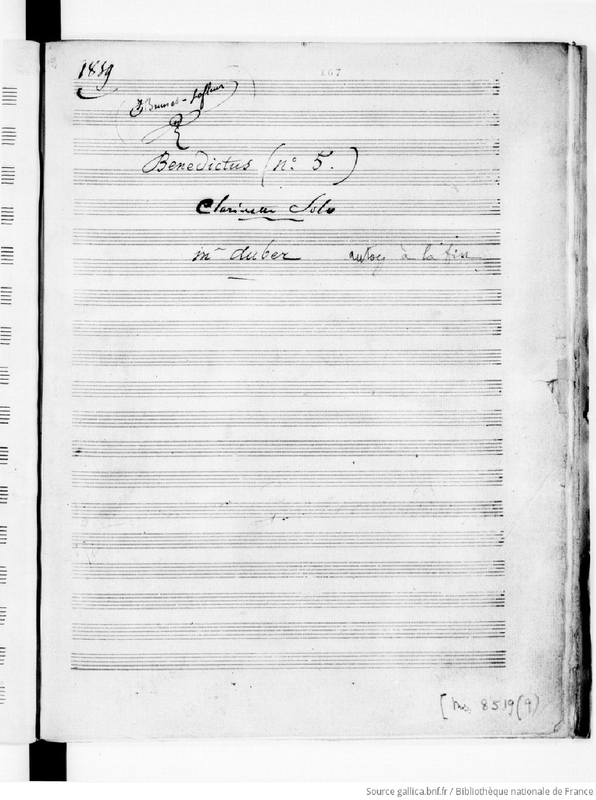 1819
Benedictus (n° 5.)
Clarinette Solo
mr auber autog à la fin
[Ms. 8519(9)
Source gallica.bnf.fr / Bibliothèque nationale de France